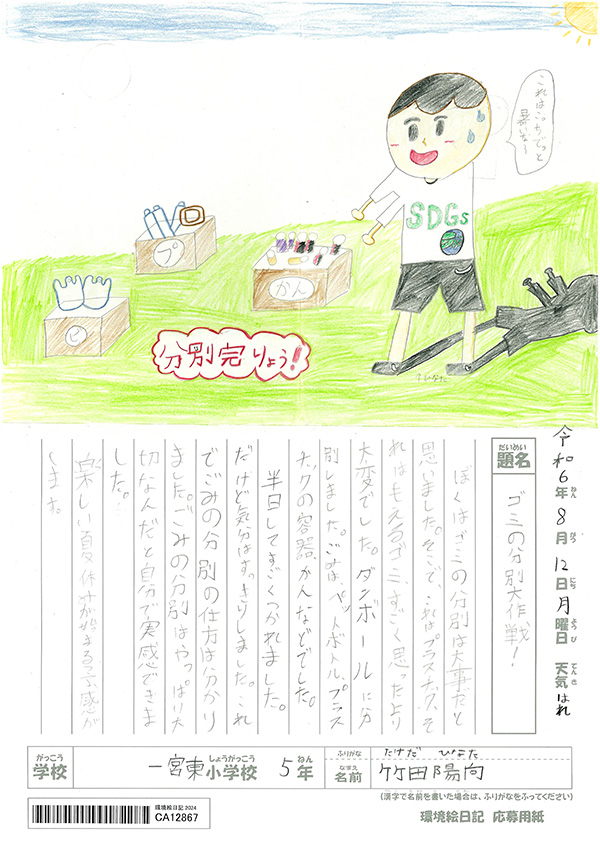 これはこっちでっと
暑いな〜
SDGs
プ
かん
ビ
分別完りょう！
↑ひなた
令和6年 8月 12日 月曜日 天気 はれ
ねん がつ にち ようび てんき
だいめい
題名
ゴミの分別大作戦！
ぼくはゴミの分別は大事だと
思いました。そこで、これはプラスチック、そ
れはもえるゴミ、すごく思ったより
大変でした。ダンボールに分
別しました。ごみは、ペットボトル、プラス
チックの容器、かんなどでした。
半日してすごくつかれました。
だけど気分はすっきりしました。これ
でごみの分別の仕方は分かり
ました。ごみの分別はやっぱり大
切なんだと自分で実感できま
した。
楽しい夏休みが始まる予感が
します。
がっこう
学校
一宮東小学校 5年
しょうがっこう ねん
ふりがな
たけだ ひなた
なまえ
名前
竹田陽向
(漢字で名前を書いた場合は、ふりがなをふってください)
環境絵日記 2024
CA12867
環境絵日記 応募用紙